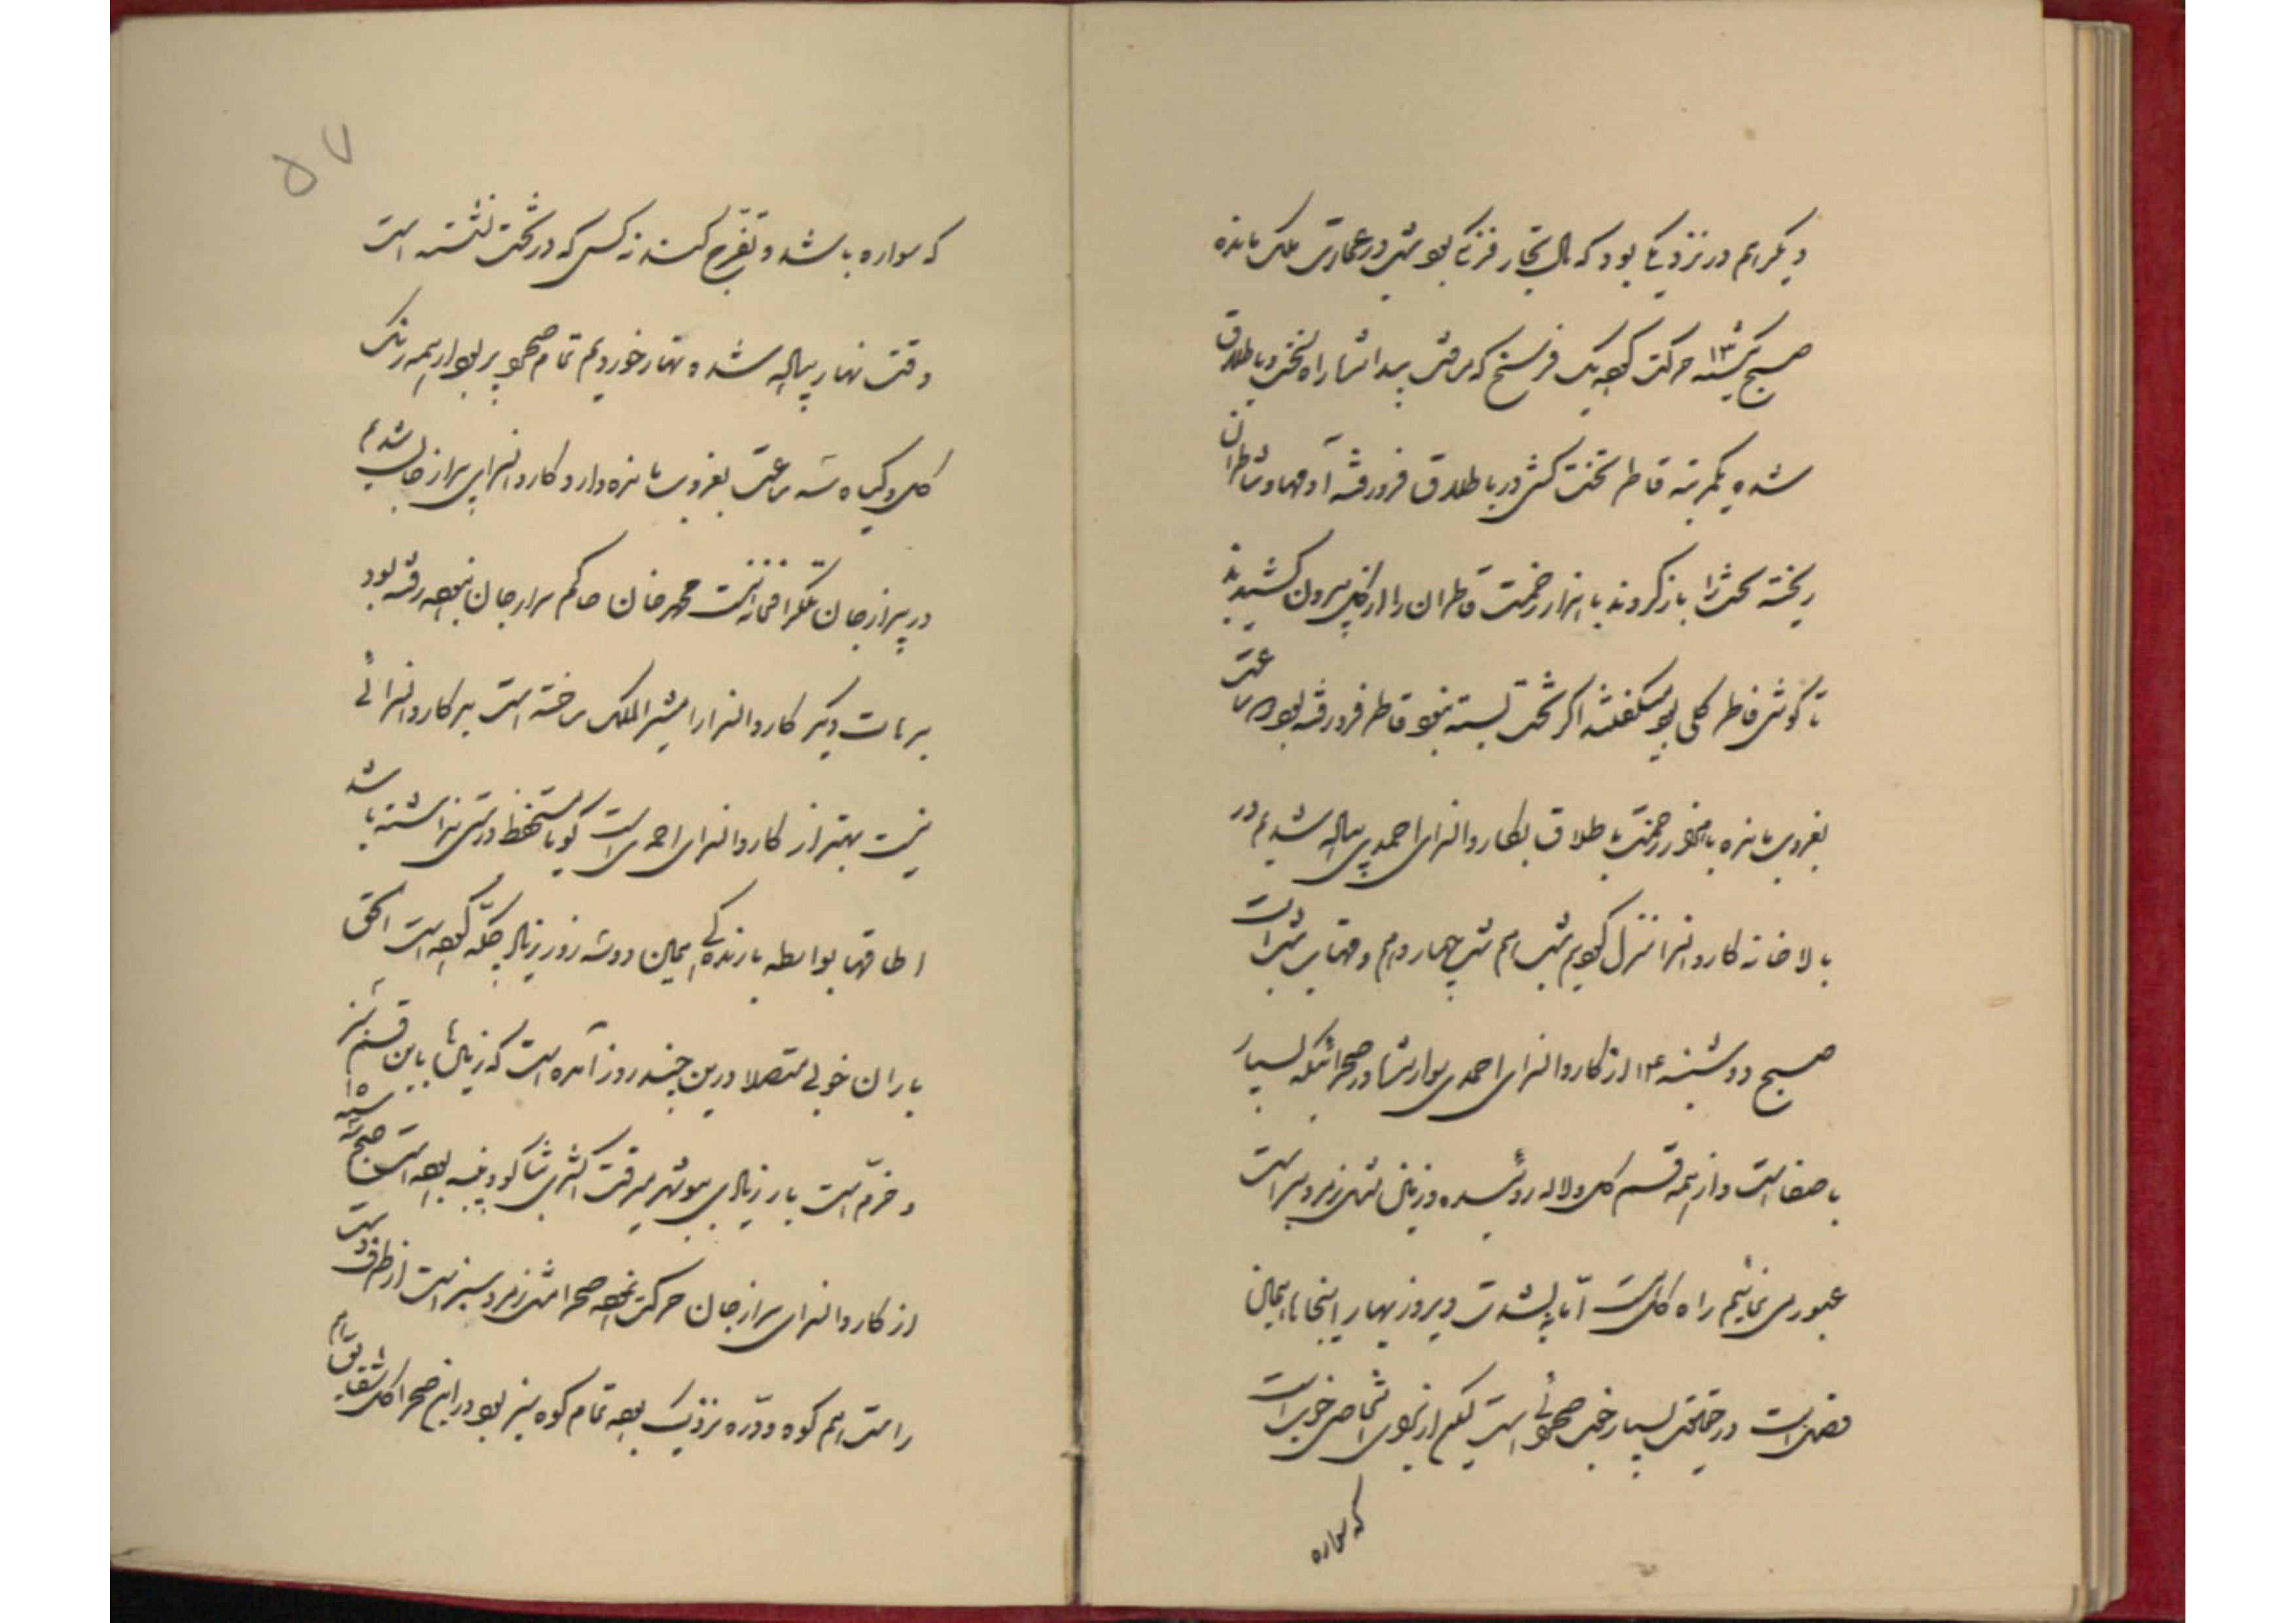 دیگر هم در نزدیکی بود که مال تجار فرنگی بود شب در عمارت ملک مانده
صبح یکشنبه ۱۳ حرکت کرده یک فرسخ که رفتیم پیدا شد راه لجن و باطلاق
شده یکمرتبه قاطر تخت کش در باطلاق فرو رفته آدمها و شاطران
ریخته تخت را باز کردند با هزار زحمت قاطران را از گل بیرون کشیدند
تا گوش قاطر گلی بود میگفتند اگر تخت بسته نبود قاطر فرو رفته بود ساعت
بغروب مانده با زحمت باطلاق بکاروانسرای احمدی پیاده شدیم در
بالاخانه کاروانسرا منزل کردیم شب هم شب چهاردهم و مهتاب است
صبح دوشنبه ۱۴ از کاروانسرای احمدی سوار شده در صحرائیکه بسیار
با صفا است و از همه قسم گل و لاله روئیده و زمین مثل زمرد سبز است
عبور می نمائیم راه گل است اما نه بشدت دیروز بهار اینجاها همان
فصل است در حقیقت بسیار خوب صحرائی است لیکن از برای شخص خوب است
که سواره
۵۷
که سواره باشد و تفرج کند نه کسی که در تخت نشسته است
وقت نهار پیاده شده نهار خوردیم تمام صحرا پر بود از همه رنگ
گل و گیاه سه ساعت بغروب مانده وارد کاروانسرای برازجان شدیم
در برازجان تلگرافخانه است محمد خان حاکم برازجان رفته بود
کاروانسرا را مشیرالملک ساخته است بد کاروانسرائی
نیست بهتر از کاروانسرای احمدی است گویا مستحفظ درستی نداشته باشد
اطاقها بواسطه بارندگی همین دو سه روز زیاد چکه کرده است الحق
باران خوبی متصلا درین چند روز آمده است که زمین ها باین قسم سبز
و خرم است بار زیادی ببوشهر میرفت اکثری تنباکو و پنبه بوده است صبح سه شنبه ۱۵
از کاروانسرای برازجان حرکت نموده صحرا مثل زمرد سبز است از طرف دست
راست هم کوه و دره نزدیک بوده تمام کوه سبز بود در این صحرا گل شقایق هم